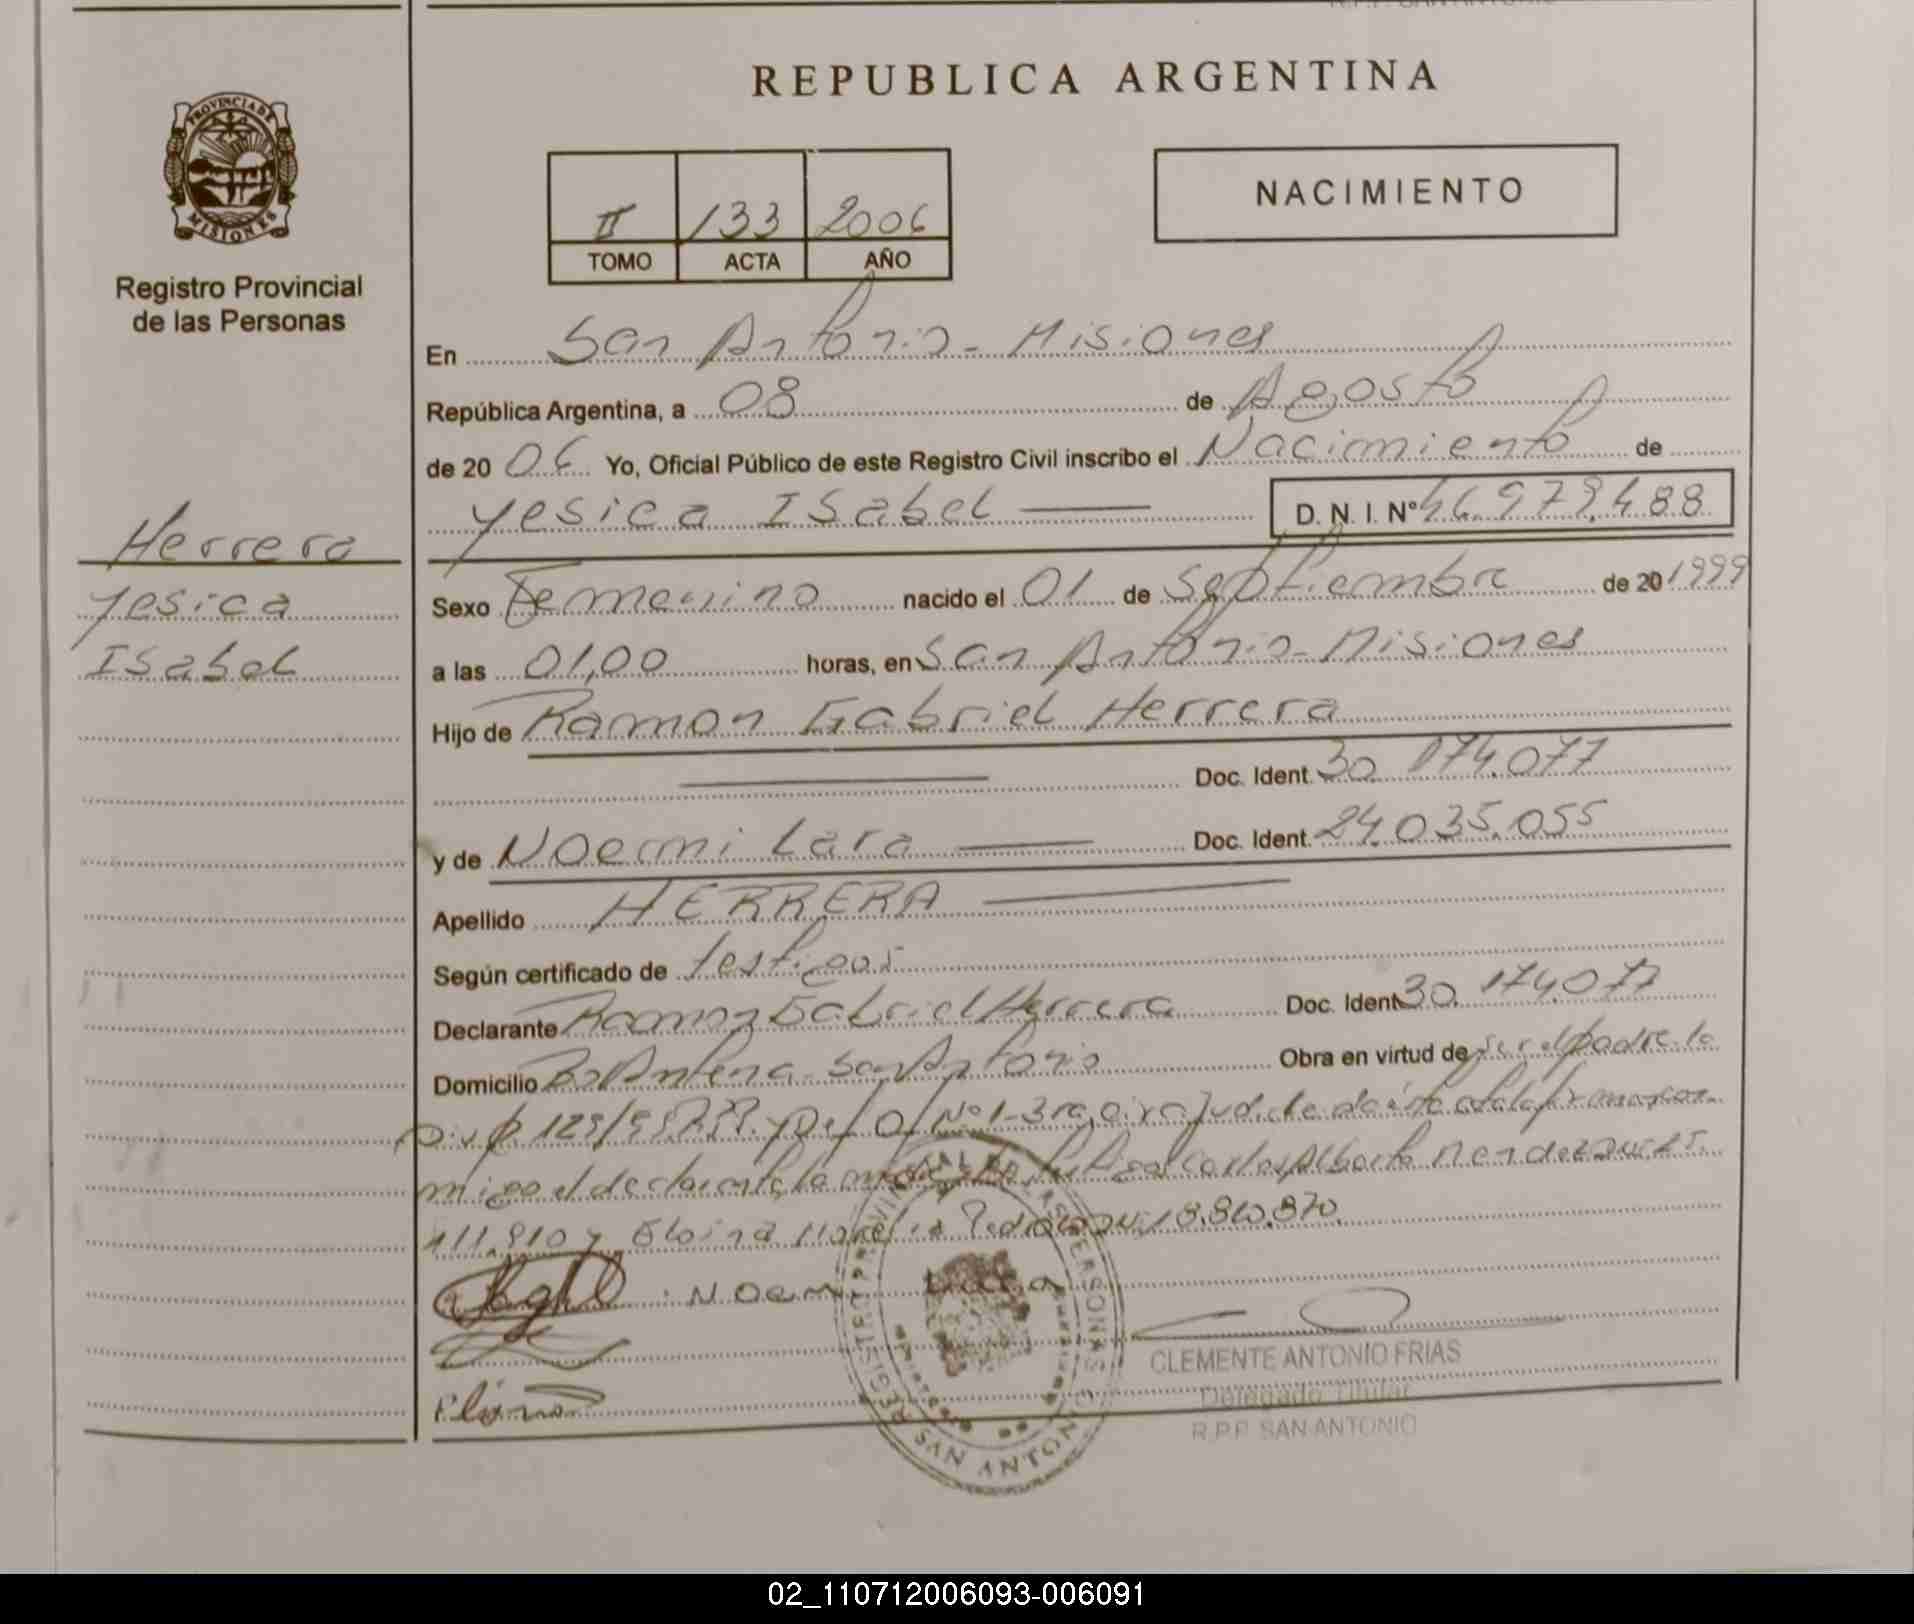 REPUBLICA ARGENTINA
PROVINCIA DE MISIONES
Registro Provincial
de las Personas
NACIMIENTO
II 133 2006
TOMO ACTA AÑO
En San Antonio - Misiones
República Argentina, a 08 de Agosto
de 20 06 Yo, Oficial Público de este Registro Civil inscribo el Nacimiento de
Yesica Isabel D. N. I. Nº 46.979.488
Herrera
Yesica
Isabel
Sexo Femenino nacido el 01 de Septiembre de 20 1999
a las 01,00 horas, en San Antonio - Misiones
Hijo de Ramon Gabriel Herrera
Doc. Ident. 30.174.077
y de Noemi Lara Doc. Ident. 24.035.055
Apellido HERRERA
Según certificado de testigos
Declarante Ramon Gabriel Herrera Doc. Ident 30.174.077
Domicilio San Antonio Obra en virtud de ser el padre
Nº 1 - 3ra
el declarante la Carlos Alberto
y 18.810.870
Noemi Lara
CLEMENTE ANTONIO FRIAS
Delegado Titular
R.P.P. SAN ANTONIO
SAN ANTONIO
02_110712006093-006091